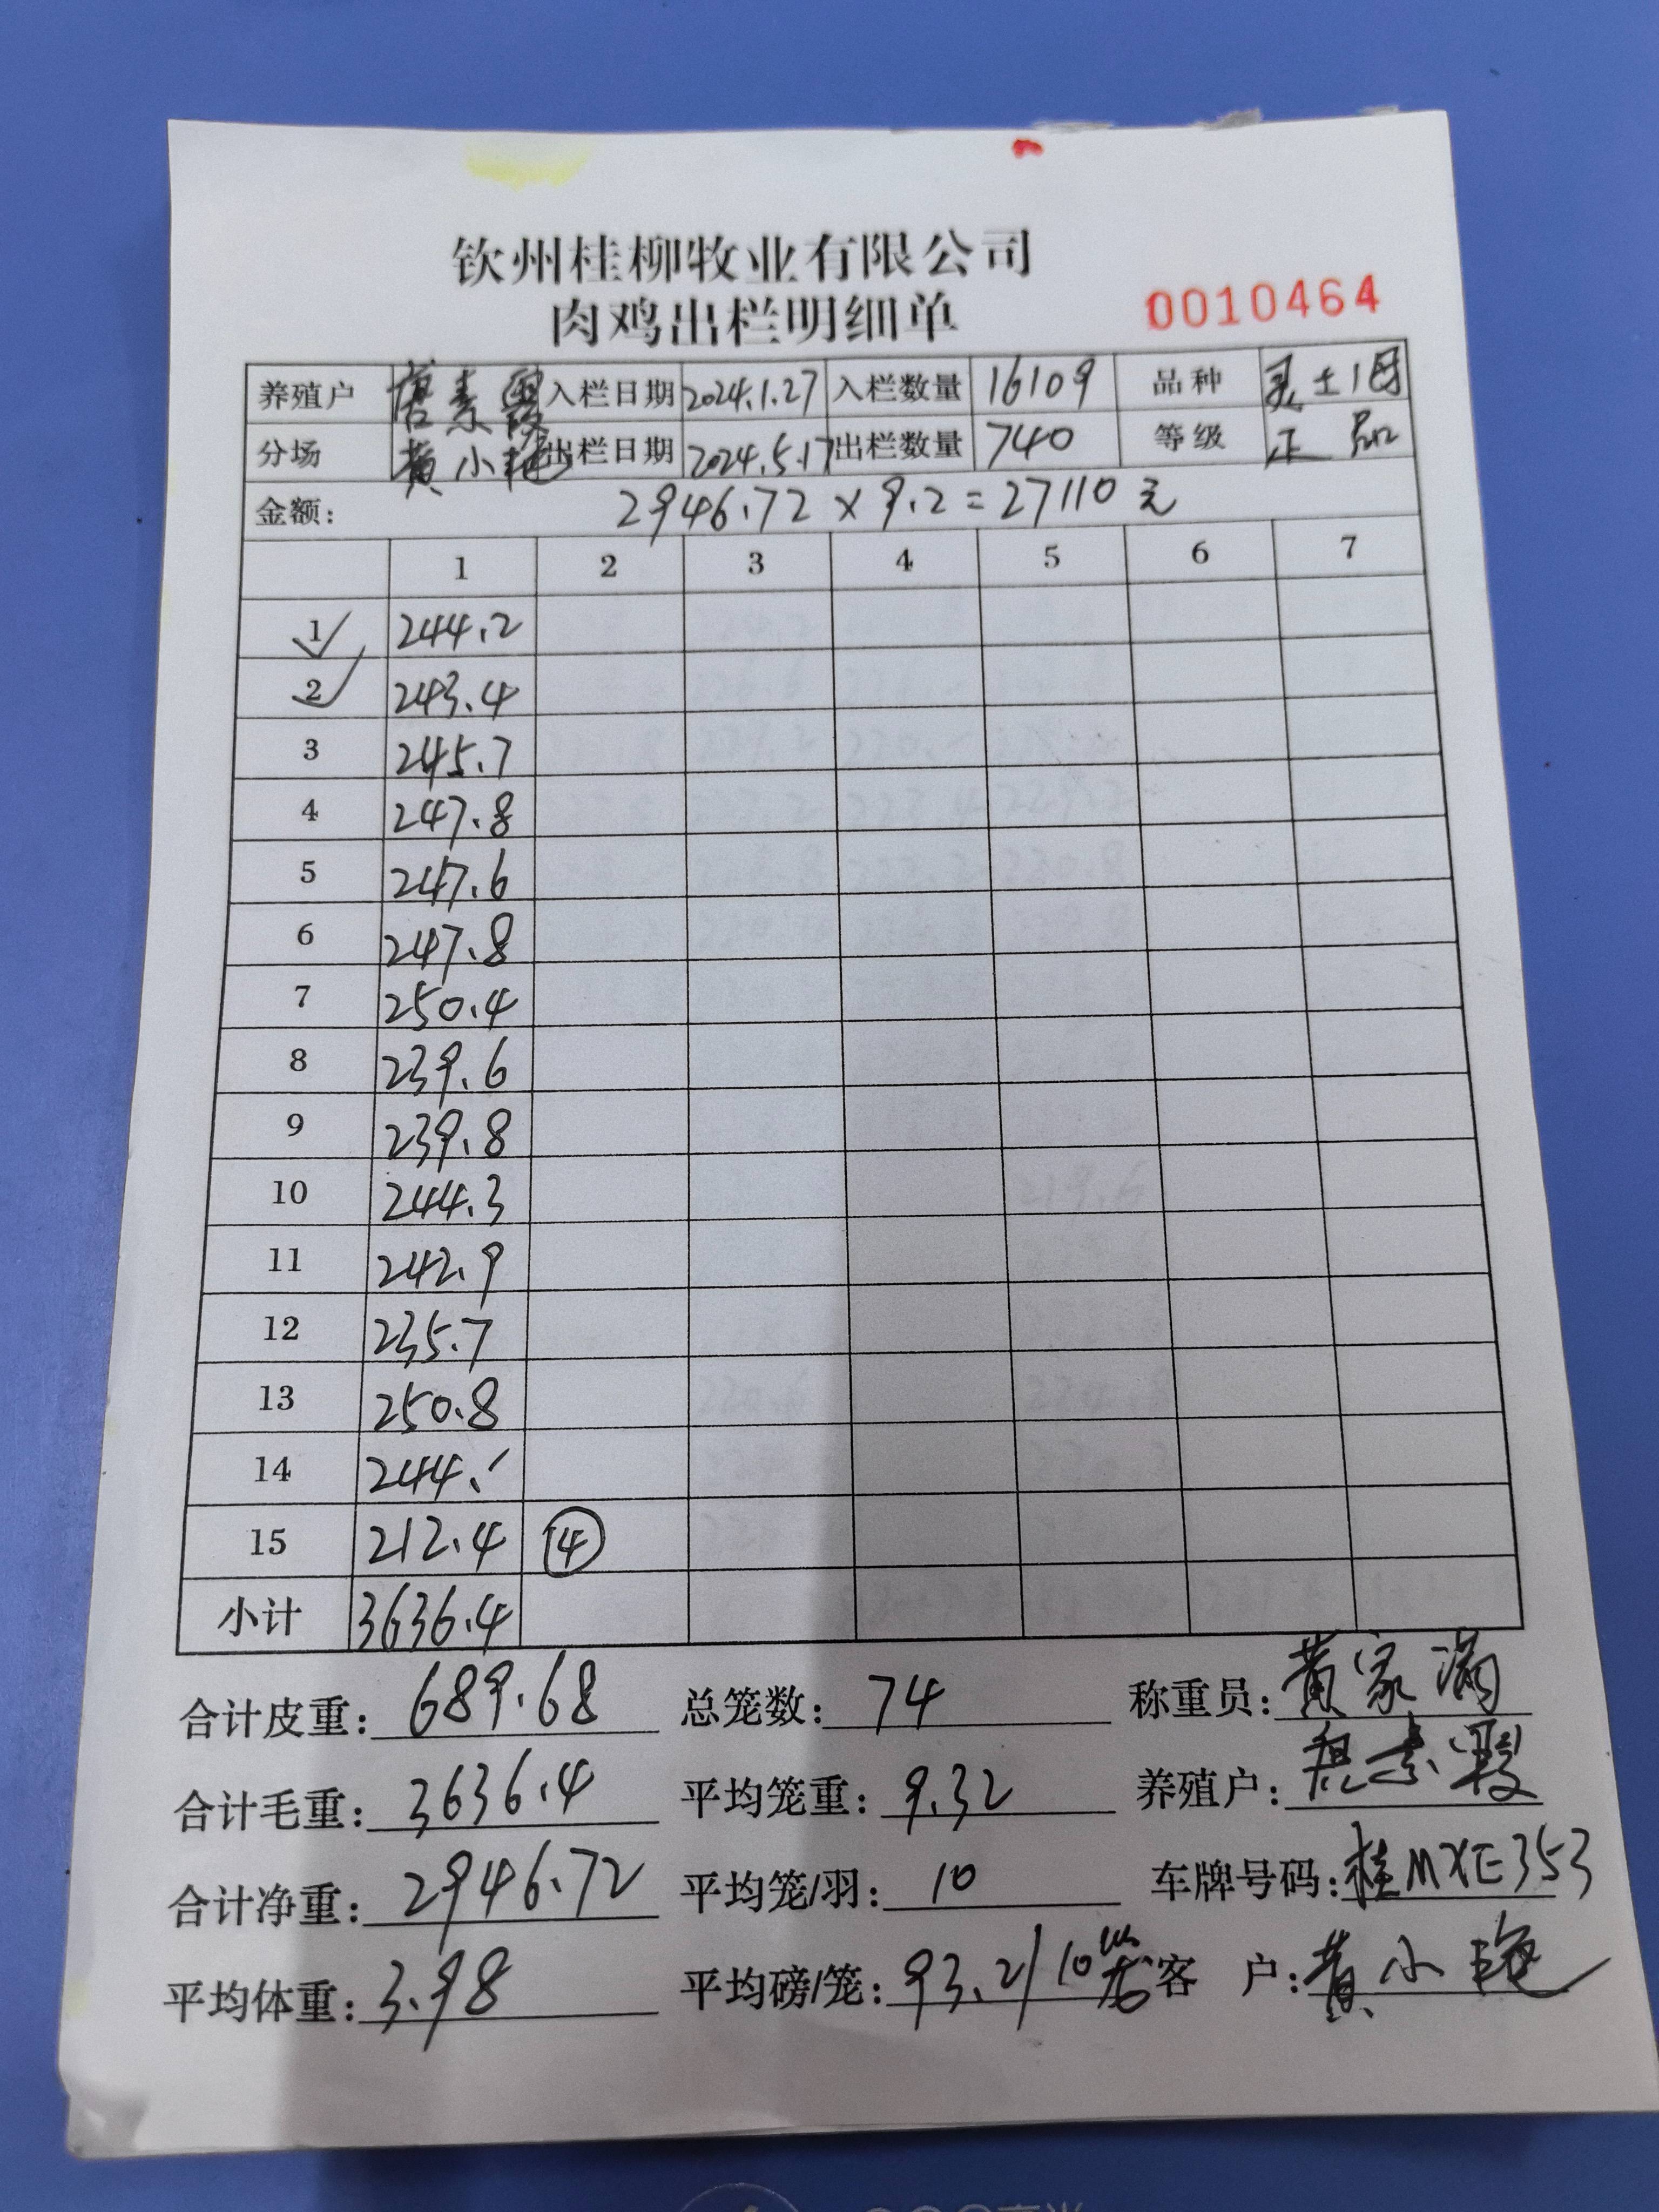 钦州桂柳牧业有限公司
肉鸡出栏明细单
0010464
养殖户 唐素霞 入栏日期 2024.1.27 入栏数量 16109 品种 灵土1母
分场 黄小艳 出栏日期 2024.5.17 出栏数量 740 等级 正品
金额: 2946.72 x 9.2 = 27110 元
1 2 3 4 5 6 7
1 244.2
2 243.4
3 245.7
4 247.8
5 247.6
6 247.8
7 250.4
8 239.6
9 239.8
10 244.3
11 242.9
12 235.7
13 250.8
14 244.
15 212.4 ④
小计 3636.4
合计皮重: 689.68 总笼数: 74 称重员: 黄家满
合计毛重: 3636.4 平均笼重: 9.32 养殖户: 唐素霞
合计净重: 2946.72 平均笼/羽: 10 车牌号码: 桂MXE353
平均体重: 3.98 平均磅/笼: 93.2/10 客 户: 黄小艳